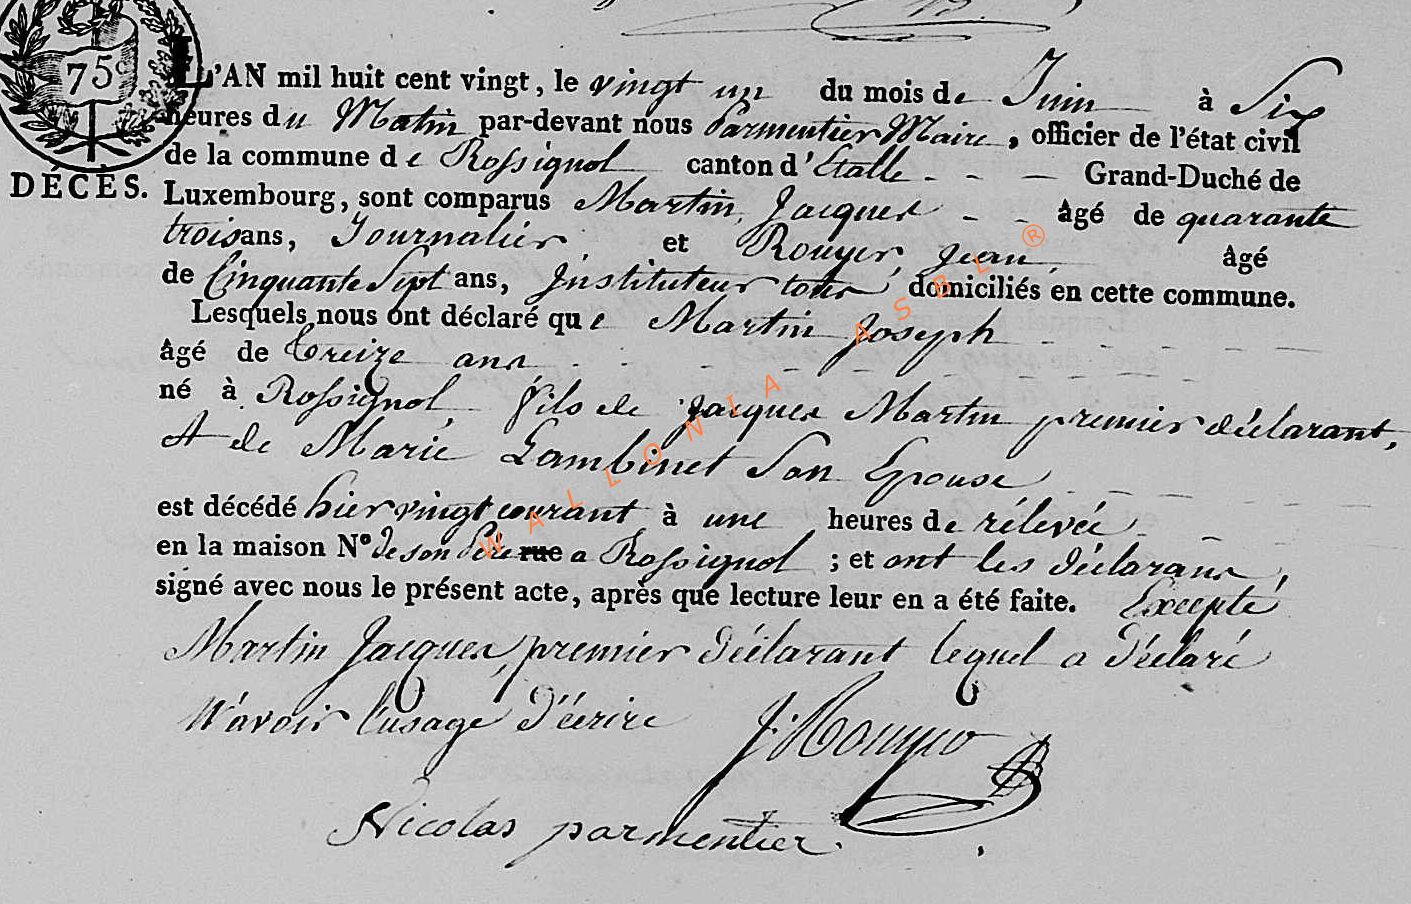 75c
L'AN mil huit cent vingt, le vingt un du mois de Juin à Six
heures du Matin par-devant nous Parmentier Maire, officier de l'état civil
de la commune de Rossignol canton d'Etalle - - - Grand-Duché de
DÉCÈS. Luxembourg, sont comparus Martin, Jacques - - âgé de quarante
trois ans, Journalier et Rouyer, Jean, âgé
de Cinquante Sept ans, Instituteur tous domiciliés en cette commune.
Lesquels nous ont déclaré que Martin Joseph
âgé de Treize ans
né à Rossignol, fils de Jacques Martin premier déclarant,
et de Marie Lambinet Son Epouse
est décédé hier vingt courant à une heures de rélevée
en la maison N° de son Père rue a Rossignol ; et ont les déclarans,
signé avec nous le présent acte, après que lecture leur en a été faite. Excepté
Martin Jacques, premier déclarant lequel a déclaré
N'avoir l'usage d'écrire J: Rouyer
Nicolas parmentier.
WALLONIA ASBL ®